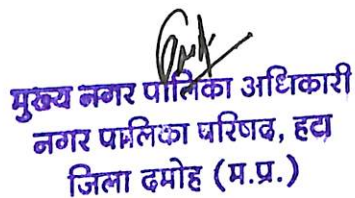 मुख्य नगर पालिका अधिकारी
नगर पालिका परिषद, हटा
जिला दमोह (म.प्र.)